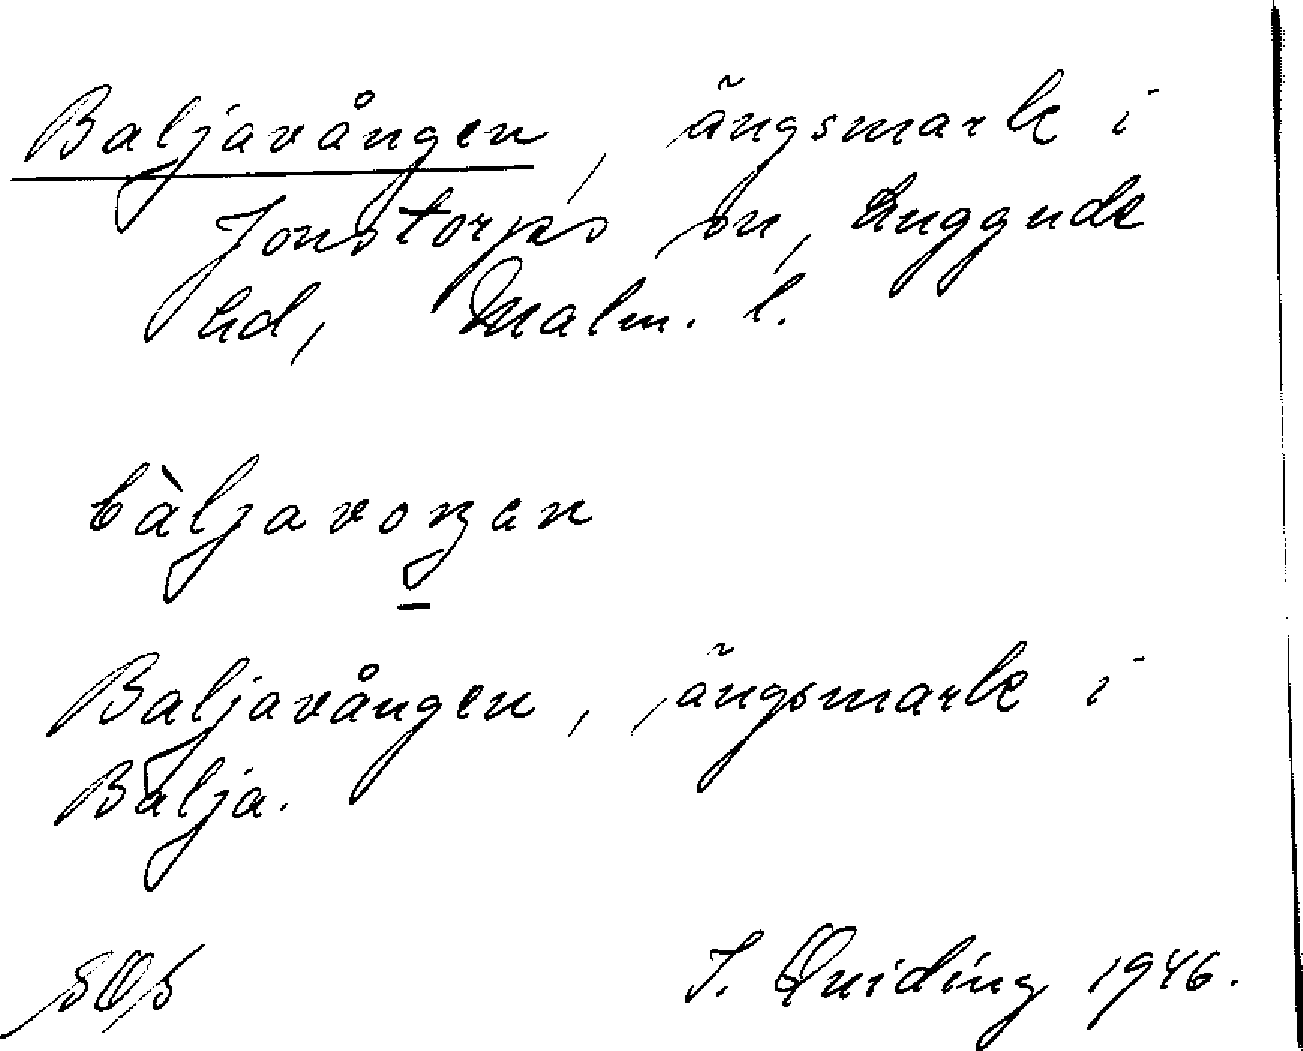 Baljavången, ängsmark i
Jonstorps sn, Luggude
hd, Malm. l.
bàljavoŋan
Baljavången, ängsmark i
Balja.
S. Quiding 1946.